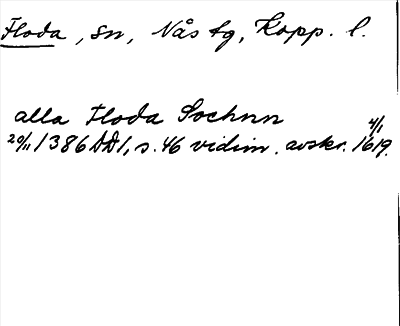 Floda, sn, Nås tg, Kopp. l.
alla Floda Sochnn 4/1
20/11 1386 DD1, s. 46 vidim. avskr. 1619.